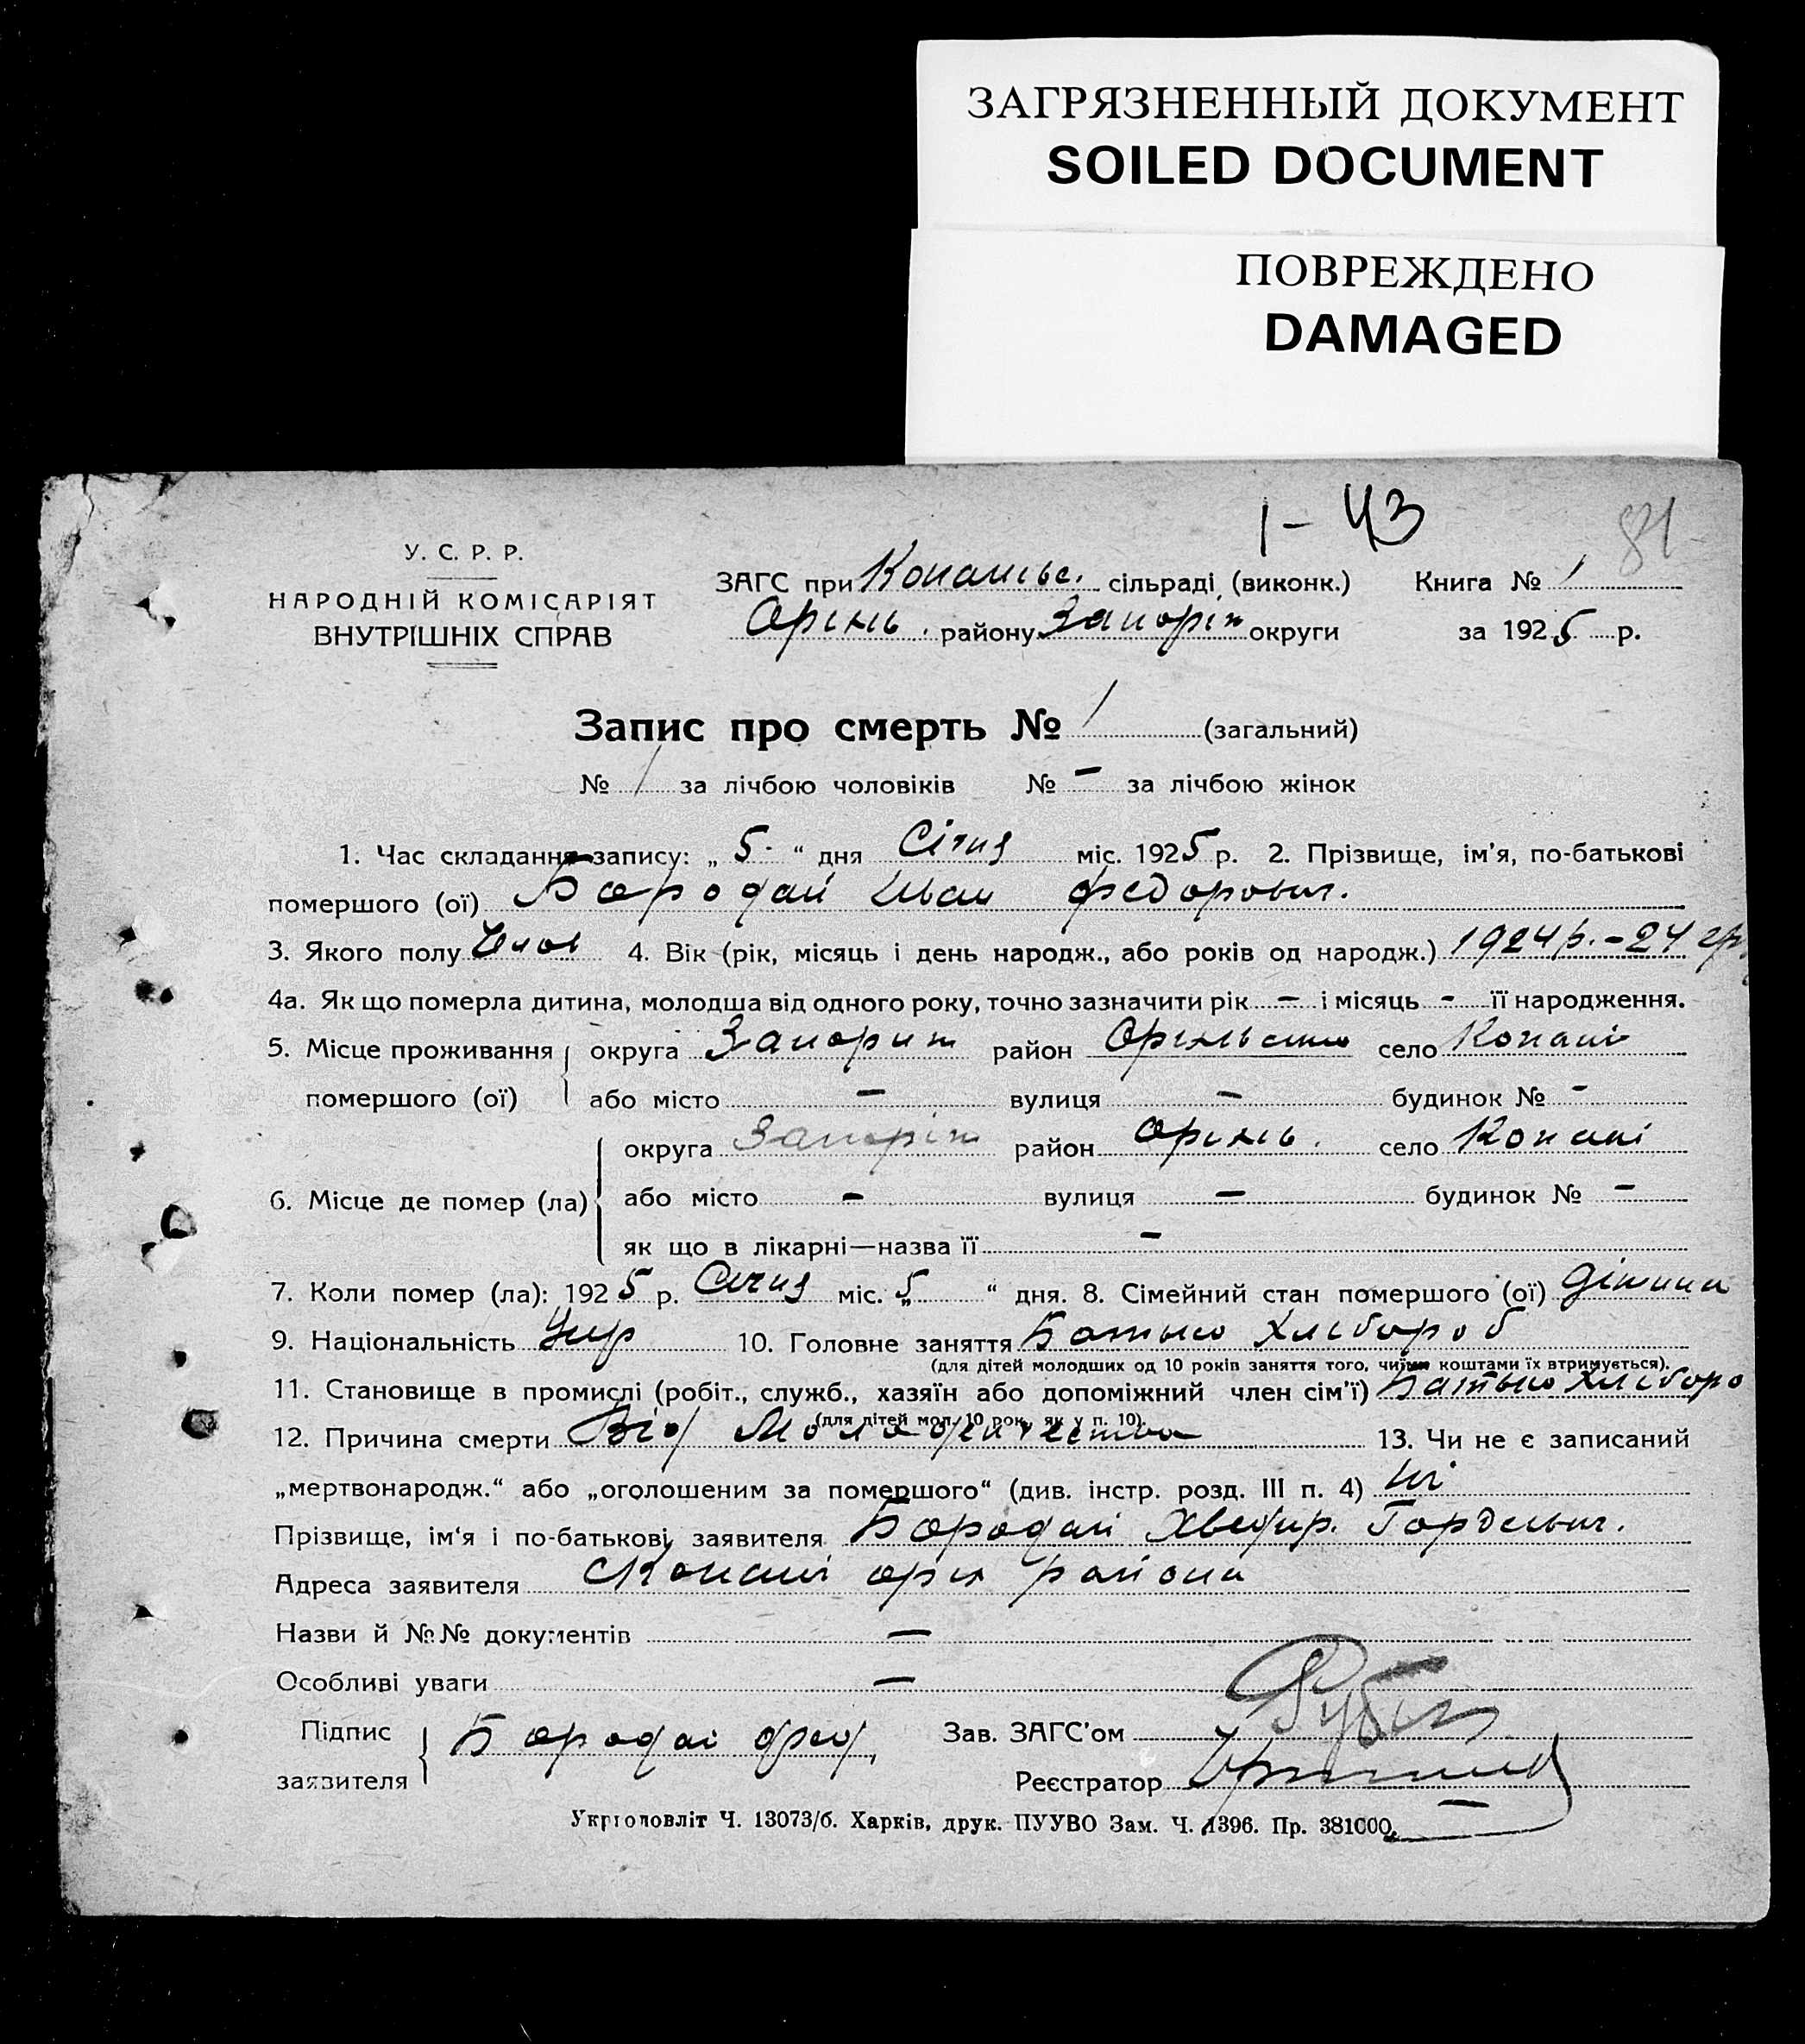 ЗАГРЯЗНЕННЫЙ ДОКУМЕНТ
SOILED DOCUMENT
ПОВРЕЖДЕНО
DAMAGED
1 - 43
81
У. С. Р. Р.
НАРОДНІЙ КОМІСАРІЯТ
ВНУТРІШНІХ СПРАВ
ЗАГС при Копанівс. сільраді (виконк.) Книга № 1
Оріхів. району Запоріж округи за 1925 р.
Запис про смерть № 1 (загальний)
№ 1 за лічбою чоловіків № - за лічбою жінок
1. Час складання запису: „ 5 “ дня Січня міс. 1925 р. 2. Прізвище, ім'я, по-батькові
помершого (ої) Бородай Иван Федорович.
3. Якого полу Чолов 4. Вік (рік, місяць і день народж., або років од народж.) 1924 р. - 24 гр
4а. Як що померла дитина, молодша від одного року, точно зазначити рік - і місяць - її народження.
5. Місце проживання округа Запориж район село Копані
помершого (ої) або місто - вулиця - будинок № -
округа Запоріж район Оріхів. село Копані
6. Місце де помер (ла) або місто - вулиця - будинок № -
як що в лікарні—назва її -
7. Коли помер (ла): 1925 р. Січня міс. „ 5 “ дня. 8. Сімейний стан помершого (ої) Дитина
9. Національність Укр 10. Головне заняття Батько Хлібороб
(для дітей молодших од 10 років заняття того, чиїми коштами їх втримується).
11. Становище в промислі (робіт., служб., хазяїн або допоміжний член сім'ї) Батько Хлiборо
(для дітей мол. 10 рок. як у п. 10).
12. Причина смерти Від 13. Чи не є записаний
„мертвонародж.“ або „оголошеним за помершого“ (див. інстр. розд. III п. 4) Ні
Прізвище, ім'я і по-батькові заявителя Бородай Хведир. Гордеевич.
Адреса заявителя с Копані орих района
Назви й №№ документів -
Особливі уваги -
Підпис
заявителя Бородай Фед. Зав. ЗАГС'ом
Реєстратор
Укрголовліт Ч. 13073/б. Харків, друк. ПУУВО Зам. Ч. 1396. Пр. 381000.